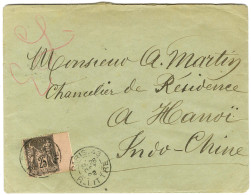 Monsieur A. Martin
Chancelier de Résidence
a Hanoï
Indo-Chine